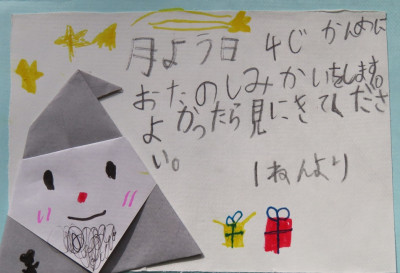 月よう日 4じ かんめに
おたのしみかいをします。
よかったら見にきてくださ
い。
1ねんより